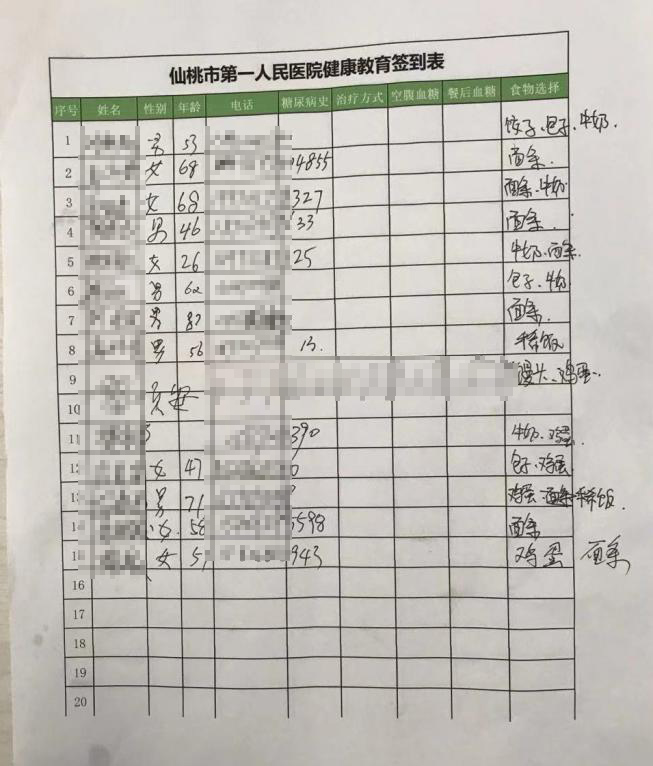 仙桃市第一人民医院健康教育签到表
序号 姓名 性别 年龄 电话 糖尿病史 治疗方式 空腹血糖 餐后血糖 食物选择
1 男 53 饺子、包子、牛奶.
2 女 68 04855 面条.
3 女 68 327 面条、牛奶
4 男 46 33 面条.
5 女 26 25 牛奶、面条.
6 男 62 包子、牛奶
7 男 面条.
8 男 56 13. 稀饭
9 馒头、鸡蛋.
10
11 390 牛奶、鸡蛋
12 女 47 0 包子、鸡蛋
13 男 71 鸡蛋、面条稀饭.
14 女 58 5598 面条
15 女 5 943 鸡蛋 面条
16
17
18
19
20